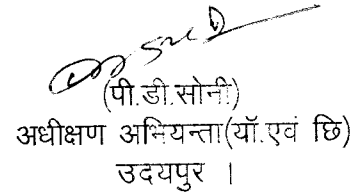 (पी.डी.सोनी)
अधीक्षण अभियन्ता(यॉ.एवं छि)
उदयपुर ।